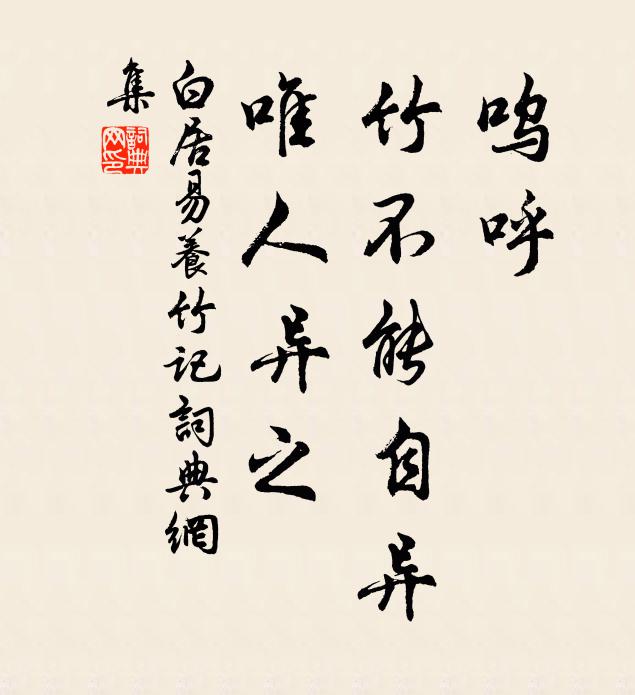 呜呼
竹不能自异
唯人异之
白居易養竹记詞典網
集
詞典
网印